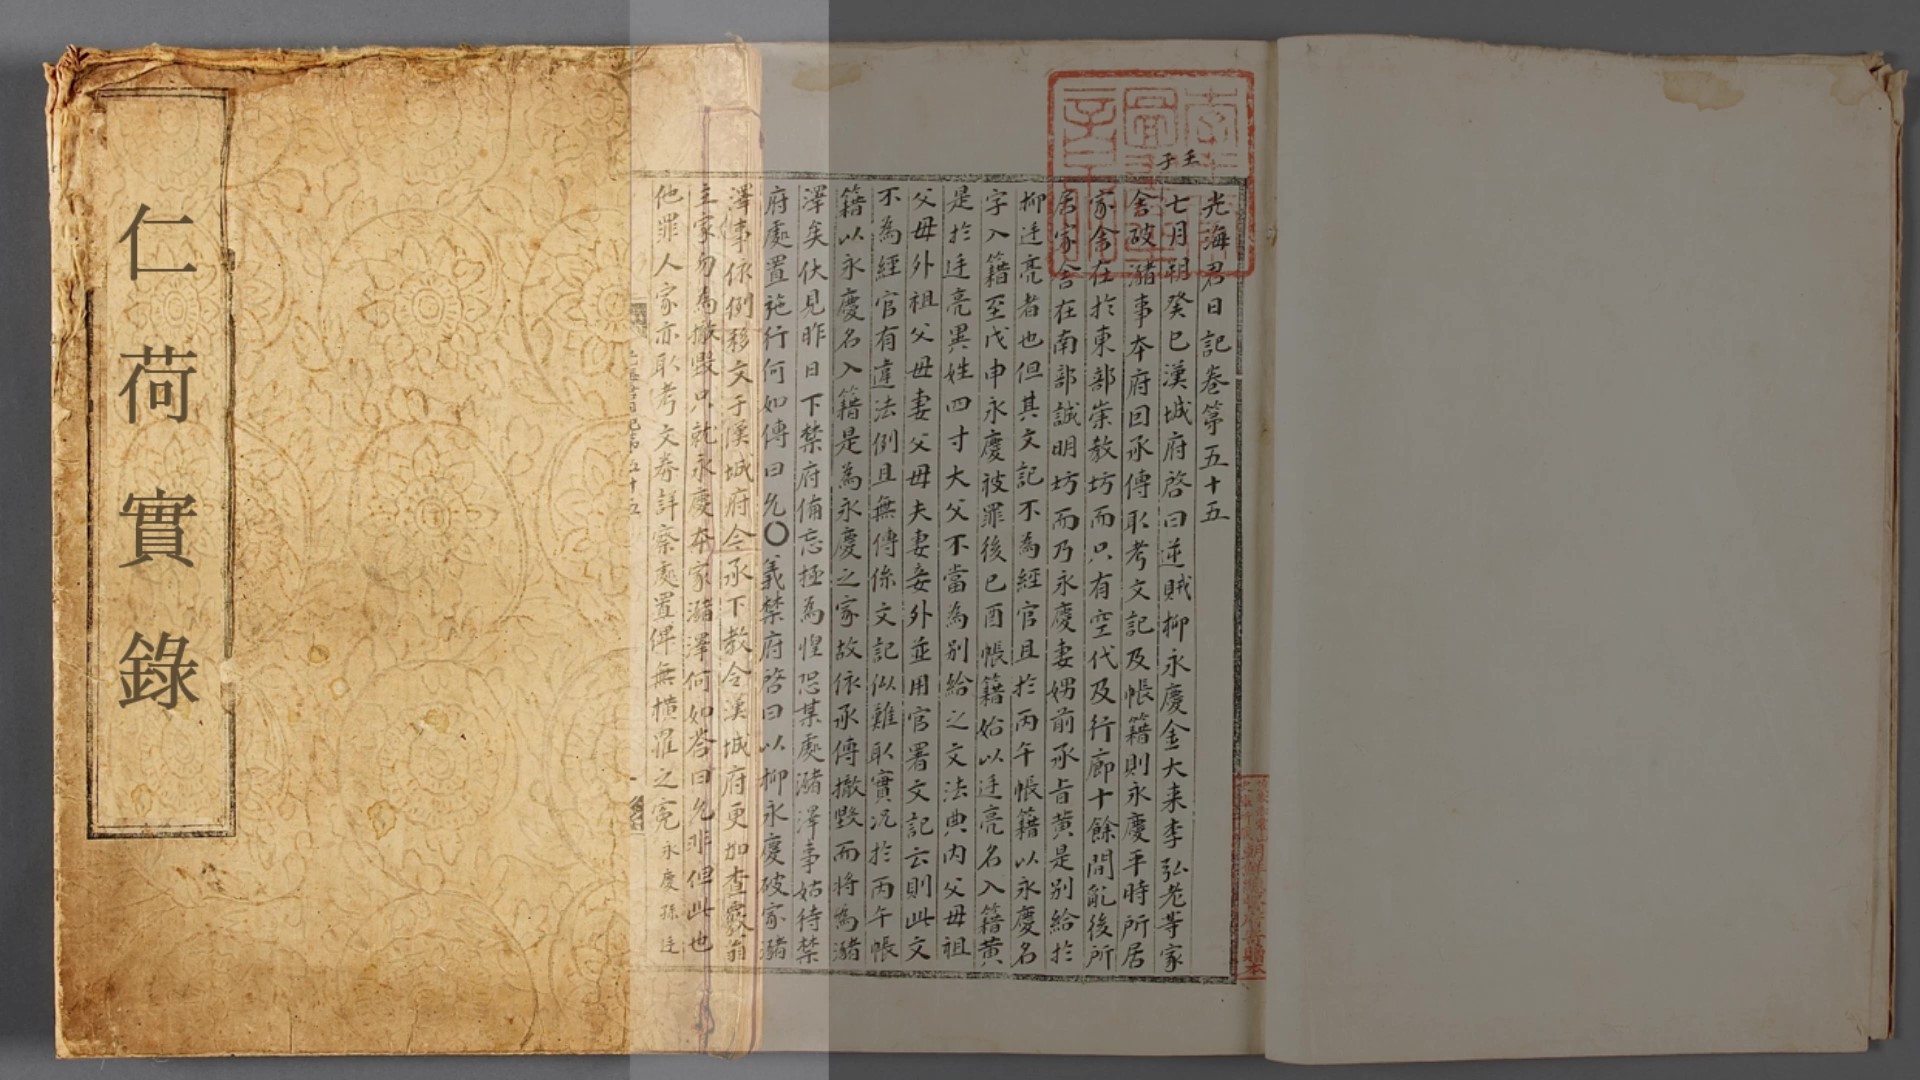 仁荷實錄
壬子
光海君日記卷第五十五
七月朔癸巳漢城府啓曰逆賊柳永慶金大来李弘老等家
舍破瀦事本府因承傳取考文記及帳籍則永慶平時所居
家舍在於東部崇教坊而只有空代及行廊十餘間亂後所
居家舍在南部誠明坊而乃永慶妻娚前承旨黃是別給於
柳廷亮者也但其文記不為經官且於丙午帳籍以永慶名
字入籍至戊申永慶被罪後己酉帳籍始以廷亮名入籍黃
是於廷亮異姓四寸大父不當為別給之文法典內父母祖
父母外祖父母妻父母夫妻妾外並用官署文記云則此文
不為經官有違法例且無傳係文記似難取實況於丙午帳
籍以永慶名入籍是為永慶之家故依承傳撤毀而將為瀦
澤矣伏見昨日下禁府備忘極為惶恐某處瀦澤事姑待禁
府處置施行何如傳曰允○義禁府啓曰以柳永慶破家瀦
澤事依例移文于漢城府今承下教令漢城府更加查覈翁
主家勿為撤毀只就永慶本家瀦澤何如答曰允非但此也
他罪人家亦取考文券詳察處置俾無橫罹之寃永慶孫廷